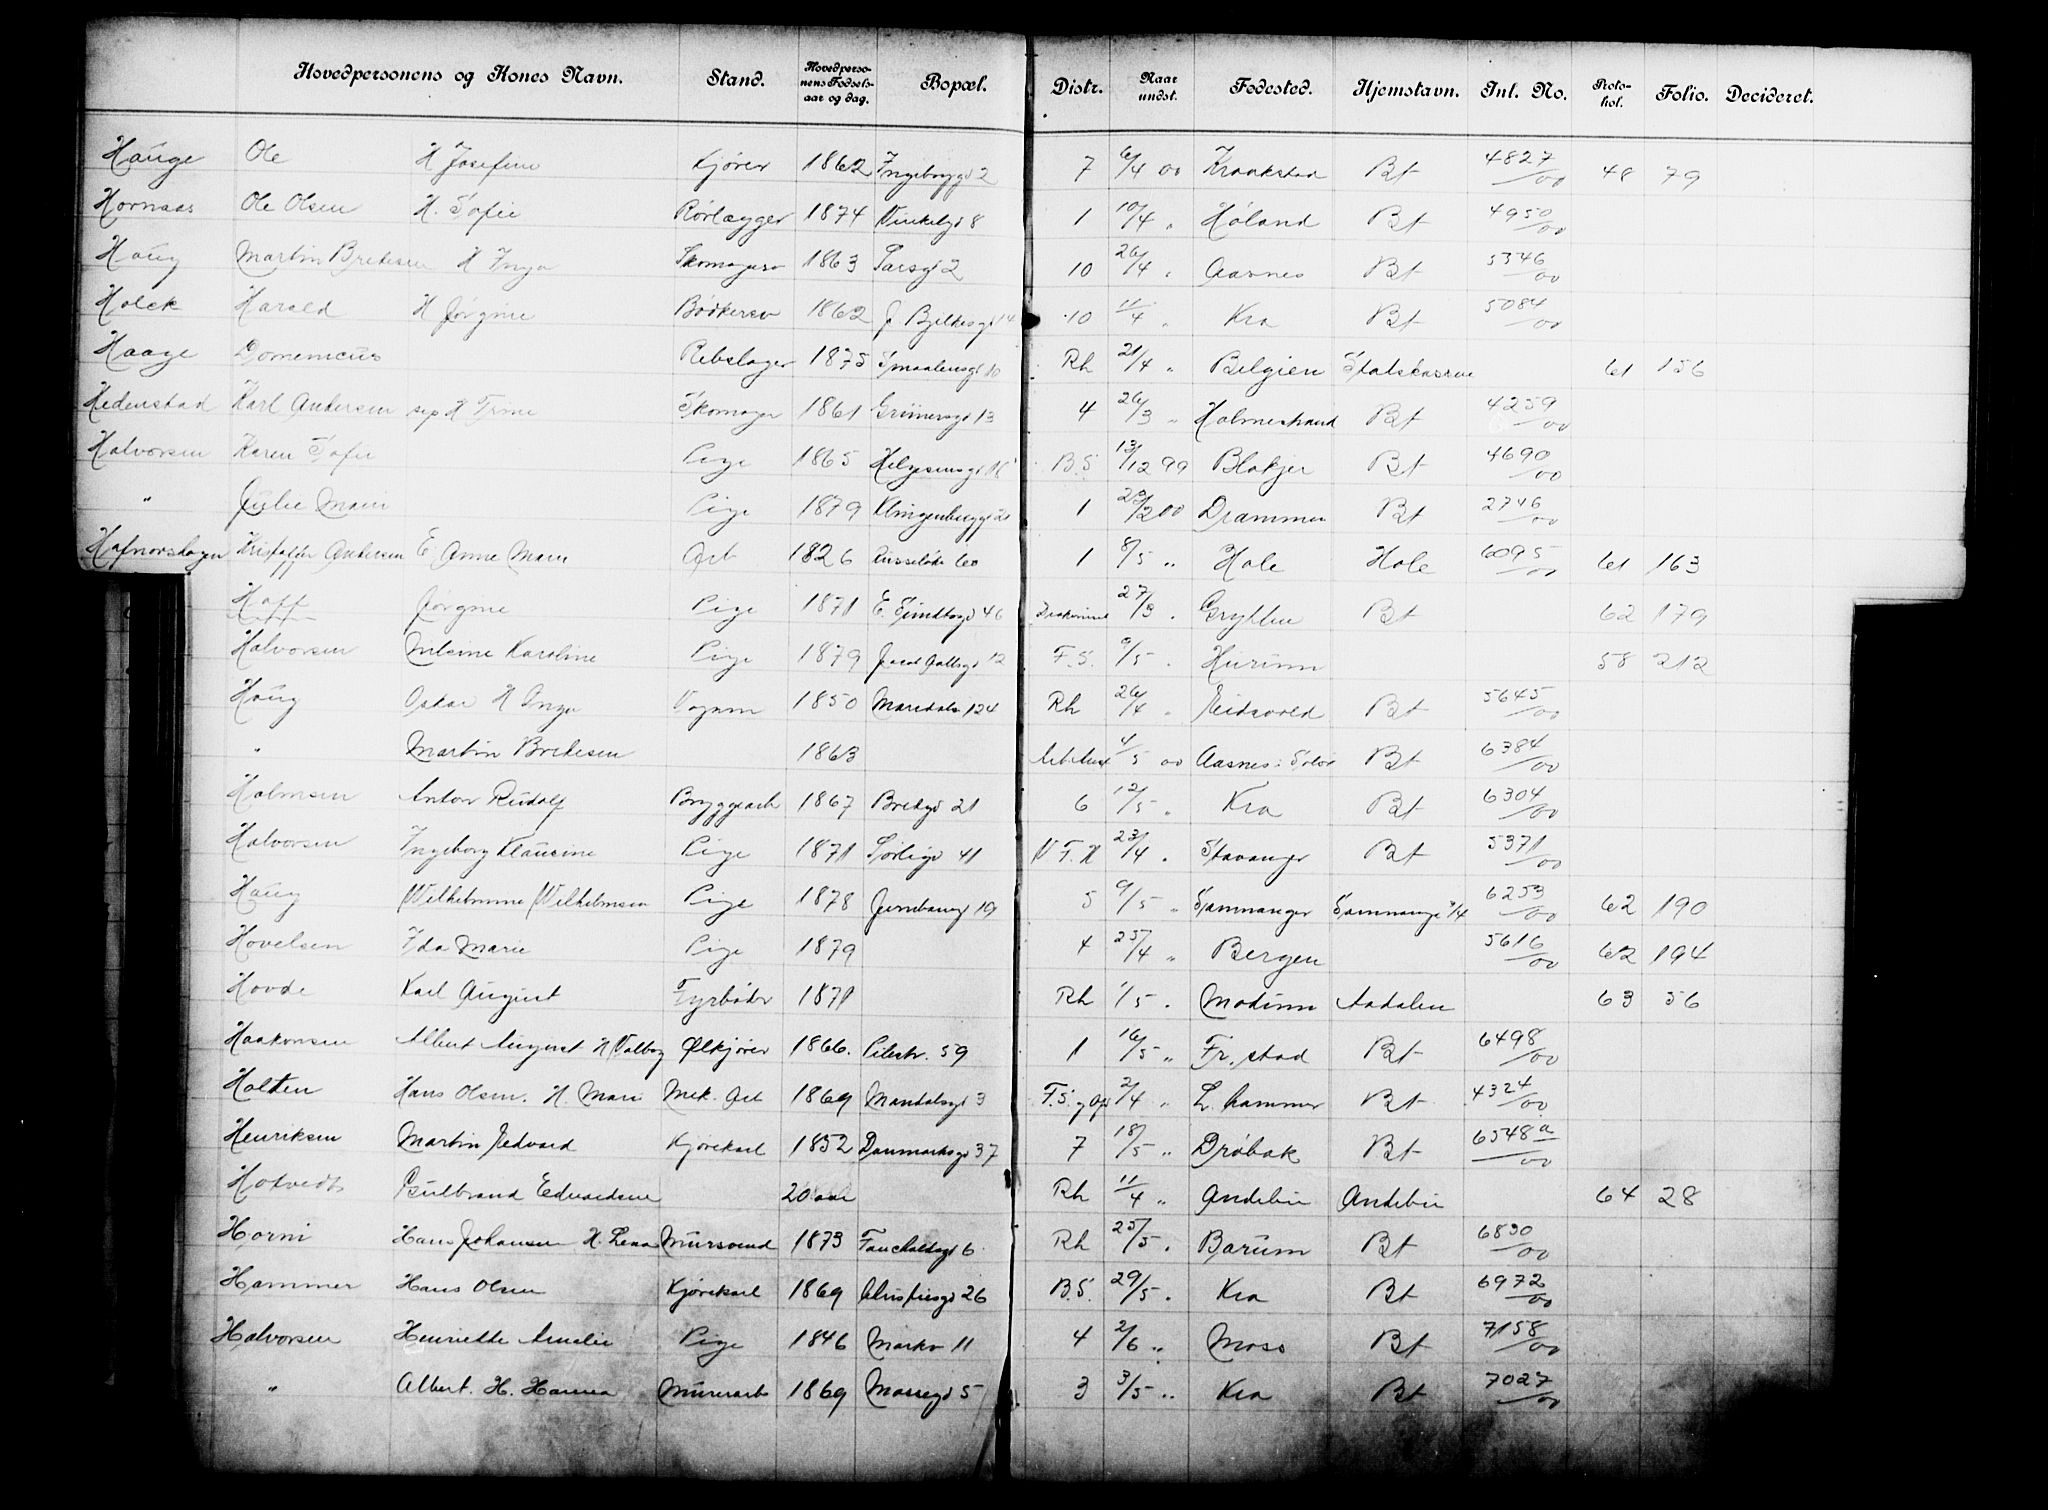 Hovedpersonens og Kones Navn. Stand. Hovedpersonens Fødselsaar og dag. Bopæl. Distr. Naar undst. Fødested. Hjemstavn. Int. No. Protokol. Folio. Decideret.
Hauge Ole H Josefine Kjører 1862 2 7 6/4 00 Kraakstad Bt 4827/00 48 79
Hornaas Ole Olsen H. Sofie Rørlægger 1874 Vinkelgd 8 1 10/4 " Høland Bt 4950/00
Haug Martin Bredesen H Inga Skomagersv 1863 2 10 26/4 " Aasnes Bt 5346/00
Holck Harald H Jørgine Bødkersv 1862 J Bjelkesgd 14 10 11/4 " Kra Bt 5084/00
Haage Domenicus Rebslager 1875 Smaalensgd 10 Rh 21/4 " Belgien Statskassen 61 156
Hedenstad Karl Andersen sep H Trine Skomager 1861 Grünersgd 13 4 26/3 " Holmestrand Bt 4259/00
Halvorsen Karen Sofie Pige 1865 Helgesensgd B.S. 13/12 99 Blakjer Bt 4690/00
" Julie Marie Pige 1879 1 /2 00 Drammen Bt 2746/00
Kristoffer Andersen E Anne Marie Arb 1826 60 1 8/5 " Hole Hole 6095/00 61 163
Hoff Jørgine Pige 1871 E. Sundtsgd 46 27/3 " Grytten Bt 62 179
Halvorsen Nilsine Karoline Pige 1879 Jacob Aallsgd 12 F.S. 9/5 " Hurum 58 212
Haug Oskar H Inga Vognm 1850 Maridalsv 124 Rh 26/4 " Eidsvold Bt 5645/00
" Martin Bredesen 1863 4/5 00 Aasnes i Solør Bt 6384/00
Holmsen Anton Rudolf Bryggearb 1867 Bredgd 21 6 12/5 " Kra Bt 6304/00
Halvorsen Ingeborg Klausine Pige 1871 Sørligd 41 V F. H 23/4 " Stavanger Bt 5371/00
Haug Wilhelmine Wilhelmsen Pige 1878 Jernbanegd 19 5 9/5 " Samnanger Samnanger 62 190 6253/00
Hovelsen Ida Marie Pige 1879 4 25/4 " Bergen 5616/00 62 194
Hovde Karl August Fyrbøder 1871 Rh 1/5 " Modum Aadalen 63 56
Haakonsen Albert August H Valborg Ølkjører 1866. Pilestr. 59 1 16/5 " Fr.stad Bt 6498/00
Holten Hans Olsen. H. Marie Mek. Arb 1869 Mandalsgd 3 F.S. 2/4 " L.hammer Bt 4324/00
Henriksen Martin Edvard Kjørekarl 1852 Danmarksgd 37 7 18/5 " Drøbak Bt 6548a/00
Hotvedt Gulbrand Edvardsen 20 aar Rh 11/4 " Andebu Andebu 64 28
Horni Hans Johansen H. Lena Mursvend 1873 Fauchaldsgd 6 Rh 25/5 " Barum Bt 6830/00
Hammer Hans Olsen Kjørekarl 1869 Christiesgd 26 B.S. 29/5 " Kra Bt 6972/00
Halvorsen Henriette Amalie Pige 1846 Markv 11 4 2/6 " Moss Bt 7158/00
" Albert. H. Hanna Murerarb 1869 Mossegd 5 3 3/5 " Kra Bt 7027/00